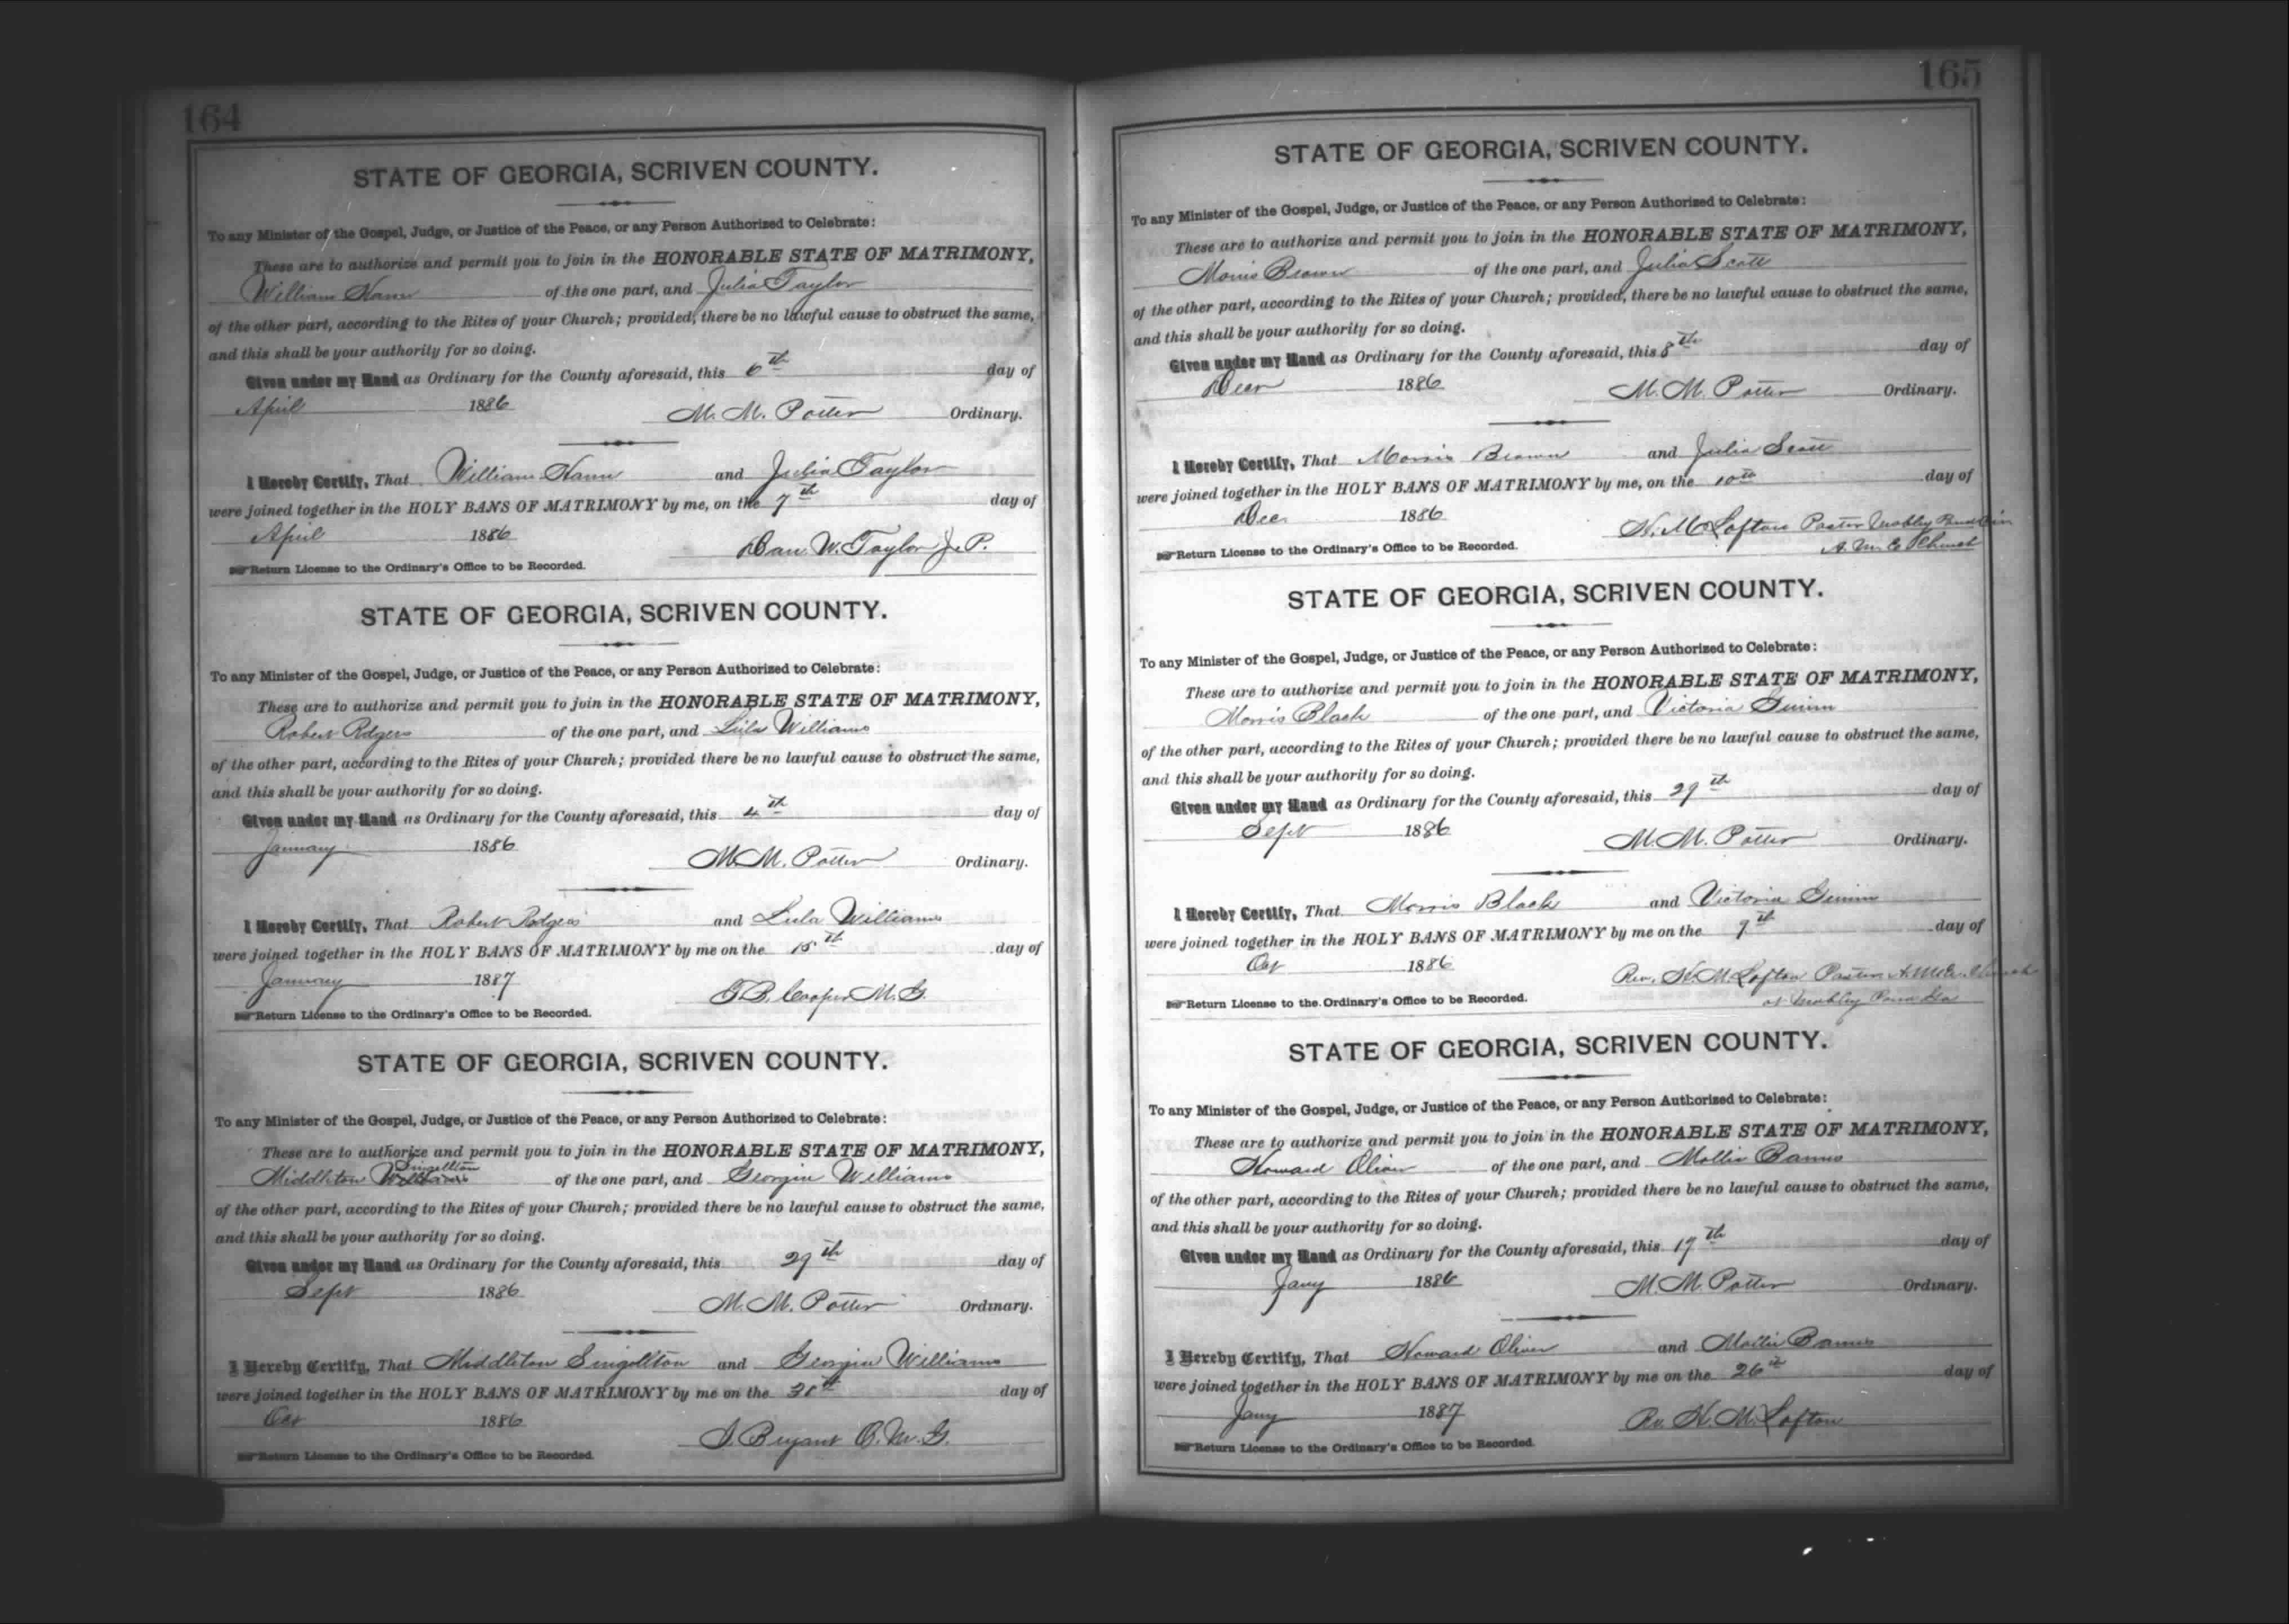 164
STATE OF GEORGIA, SCRIVEN COUNTY.
To any Minister of the Gospel, Judge, or Justice of the Peace, or any Person Authorized to Celebrate:
These are to authorize and permit you to join in the HONORABLE STATE OF MATRIMONY,
William of the one part, and Julia Taylor
of the other part, according to the Rites of your Church; provided, there be no lawful cause to obstruct the same,
and this shall be your authority for so doing.
Given under my Hand as Ordinary for the County aforesaid, this 6th day of
April 1886 M. M. Potter Ordinary.
I Hereby Certify, That William and Julia Taylor
were joined together in the HOLY BANS OF MATRIMONY by me, on the 7th day of
April 1886 Dan W. Taylor J. P.
Return License to the Ordinary's Office to be Recorded.
STATE OF GEORGIA, SCRIVEN COUNTY.
To any Minister of the Gospel, Judge, or Justice of the Peace, or any Person Authorized to Celebrate:
These are to authorize and permit you to join in the HONORABLE STATE OF MATRIMONY,
Robert Rdgers of the one part, and Lula Williams
of the other part, according to the Rites of your Church; provided there be no lawful cause to obstruct the same,
and this shall be your authority for so doing.
Given under my Hand as Ordinary for the County aforesaid, this 4th day of
January 1886 M. M. Potter Ordinary.
I Hereby Certify, That Robert Rodgers and Lula Williams
were joined together in the HOLY BANS OF MATRIMONY by me on the 15th day of
January 1887 Cooper M. G.
Return License to the Ordinary's Office to be Recorded.
STATE OF GEORGIA, SCRIVEN COUNTY.
To any Minister of the Gospel, Judge, or Justice of the Peace, or any Person Authorized to Celebrate:
These are to authorize and permit you to join in the HONORABLE STATE OF MATRIMONY,
Middleton Singellton of the one part, and Georgia Williams
of the other part, according to the Rites of your Church; provided there be no lawful cause to obstruct the same,
and this shall be your authority for so doing.
Given under my Hand as Ordinary for the County aforesaid, this 29th day of
Sept 1886 M. M. Potter Ordinary.
I Hereby Certify, That Middleton Singellton and Georgia Williams
were joined together in the HOLY BANS OF MATRIMONY by me on the day of
Oct 1886 Bryant O. M. G.
Return License to the Ordinary's Office to be Recorded.
165
STATE OF GEORGIA, SCRIVEN COUNTY.
To any Minister of the Gospel, Judge, or Justice of the Peace, or any Person Authorized to Celebrate:
These are to authorize and permit you to join in the HONORABLE STATE OF MATRIMONY,
Morris Brown of the one part, and Julia Scott
of the other part, according to the Rites of your Church; provided, there be no lawful cause to obstruct the same,
and this shall be your authority for so doing.
Given under my Hand as Ordinary for the County aforesaid, this 8th day of
Decr 1886 M. M. Potter Ordinary.
I Hereby Certify, That Morris Brown and Julia Scott
were joined together in the HOLY BANS OF MATRIMONY by me, on the 10th day of
Dec 1886 H. M. Lofton Pastor Mobley Pond
A. M. E. Church
Return License to the Ordinary's Office to be Recorded.
STATE OF GEORGIA, SCRIVEN COUNTY.
To any Minister of the Gospel, Judge, or Justice of the Peace, or any Person Authorized to Celebrate:
These are to authorize and permit you to join in the HONORABLE STATE OF MATRIMONY,
Morris Black of the one part, and Victoria
of the other part, according to the Rites of your Church; provided there be no lawful cause to obstruct the same,
and this shall be your authority for so doing.
Given under my Hand as Ordinary for the County aforesaid, this 29th day of
Sept 1886 M. M. Potter Ordinary.
I Hereby Certify, That Morris Black and Victoria
were joined together in the HOLY BANS OF MATRIMONY by me on the 7th day of
Oct 1886 Rev. H. M. Lofton Pastor A. M. E. Church
at Mobley Pond Ga
Return License to the Ordinary's Office to be Recorded.
STATE OF GEORGIA, SCRIVEN COUNTY.
To any Minister of the Gospel, Judge, or Justice of the Peace, or any Person Authorized to Celebrate:
These are to authorize and permit you to join in the HONORABLE STATE OF MATRIMONY,
Howard Oliver of the one part, and Mollie
of the other part, according to the Rites of your Church; provided there be no lawful cause to obstruct the same,
and this shall be your authority for so doing.
Given under my Hand as Ordinary for the County aforesaid, this 17th day of
Jany 1886 M. M. Potter Ordinary.
I Hereby Certify, That Howard Oliver and Mollie
were joined together in the HOLY BANS OF MATRIMONY by me on the 26th day of
Jany 1887 Rv. H. M. Lofton
Return License to the Ordinary's Office to be Recorded.